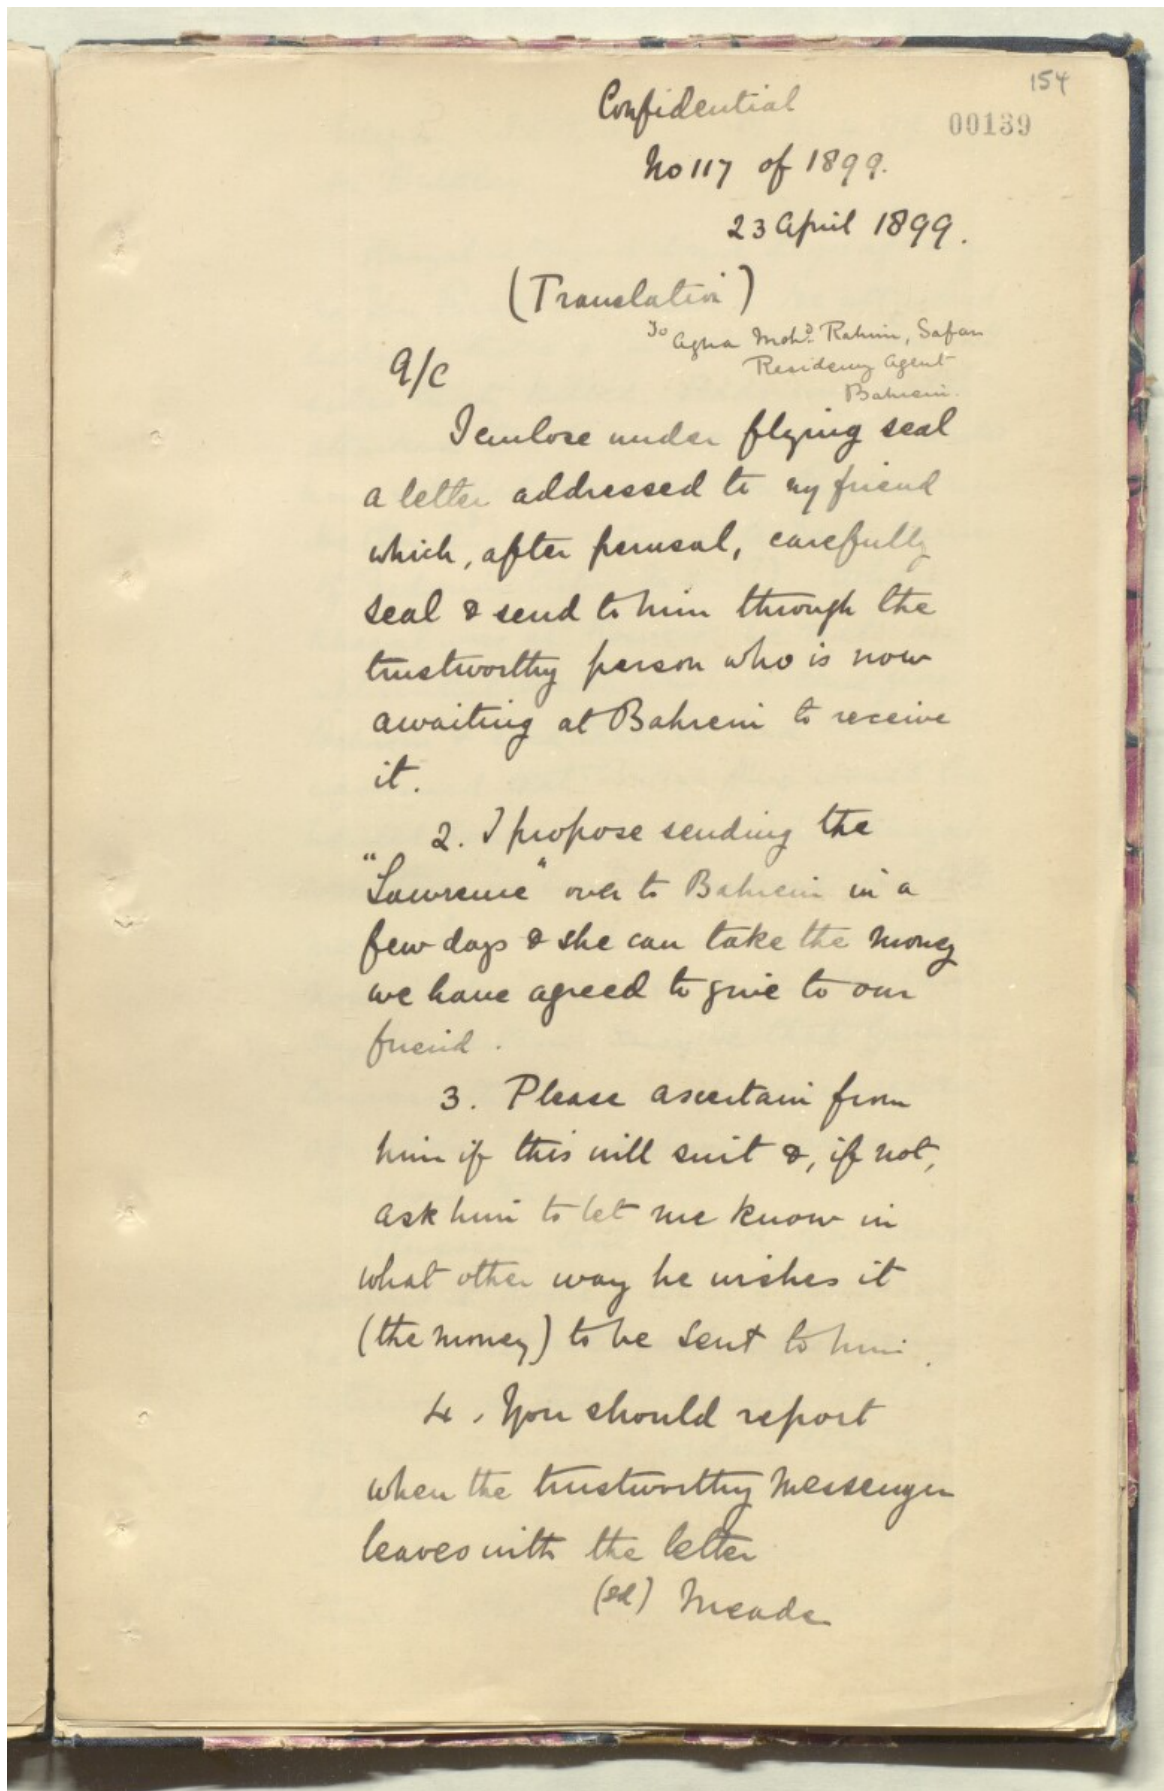 154
00139
Confidential
No 117 of 1899.
23 April 1899.
(Translation)
To Agha Mohd. Rahim, Safar
Residency Agent
Bahrein.
A/C
I enclose under flying seal
a letter addressed to my friend
which, after perusal, carefully
seal & send to him through the
trustworthy person who is now
awaiting at Bahrein to receive
it.
2. I propose sending the
"Lawrence" over to Bahrein in a
few days & she can take the money
we have agreed to give to our
friend.
3. Please ascertain from
him if this will suit &, if not,
ask him to let me know in
what other way he wishes it
(the money) to be sent to him.
4. You should report
when the trustworthy messenger
leaves with the letter
(sd) Meade